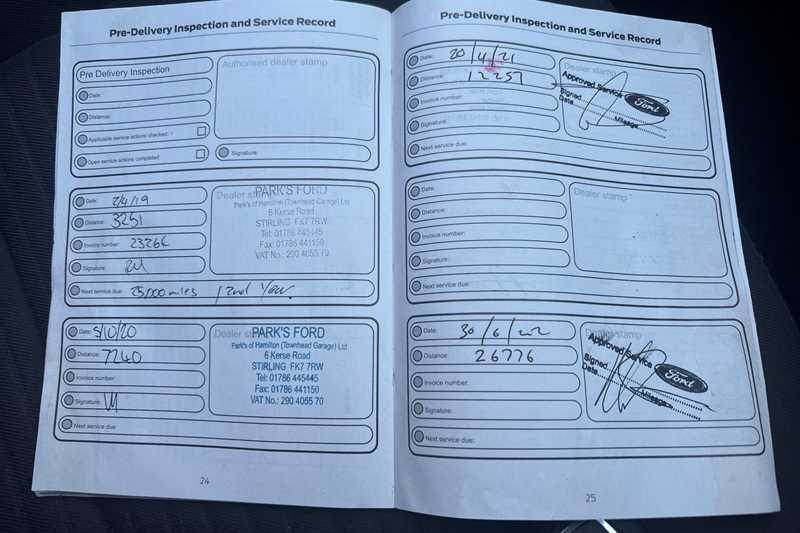 Pre-Delivery Inspection and Service Record
Pre Delivery Inspection
Authorised dealer stamp
Date:
Distance:
Applicable service actions checked: *
Open service actions completed
Signature:
Date: 2/4/19
Distance: 3251
Invoice number: 23266
Signature:
Next service due: 25,000 miles / 2nd Year.
Dealer stamp
PARK'S FORD
Park's of Hamilton (Townhead Garage) Ltd
6 Kerse Road
STIRLING FK7 7RW
Tel: 01786 445445
Fax: 01786 441150
VAT No.: 290 4055 70
Date: 5/10/20
Distance: 7740
Invoice number:
Signature:
Next service due:
Dealer stamp
PARK'S FORD
Park's of Hamilton (Townhead Garage) Ltd
6 Kerse Road
STIRLING FK7 7RW
Tel: 01786 445445
Fax: 01786 441150
VAT No.: 290 4055 70
24
Pre-Delivery Inspection and Service Record
Date: 20/4/21
Distance: 12257
Invoice number:
Signature:
Next service due:
Dealer stamp
Approved Service
Ford
Signed
Date
Mileage
Date:
Distance:
Invoice number:
Signature:
Next service due:
Dealer stamp
Date: 30/6/
Distance: 26776
Invoice number:
Signature:
Next service due:
Dealer stamp
Approved Service
Ford
Signed
Date
Mileage
25